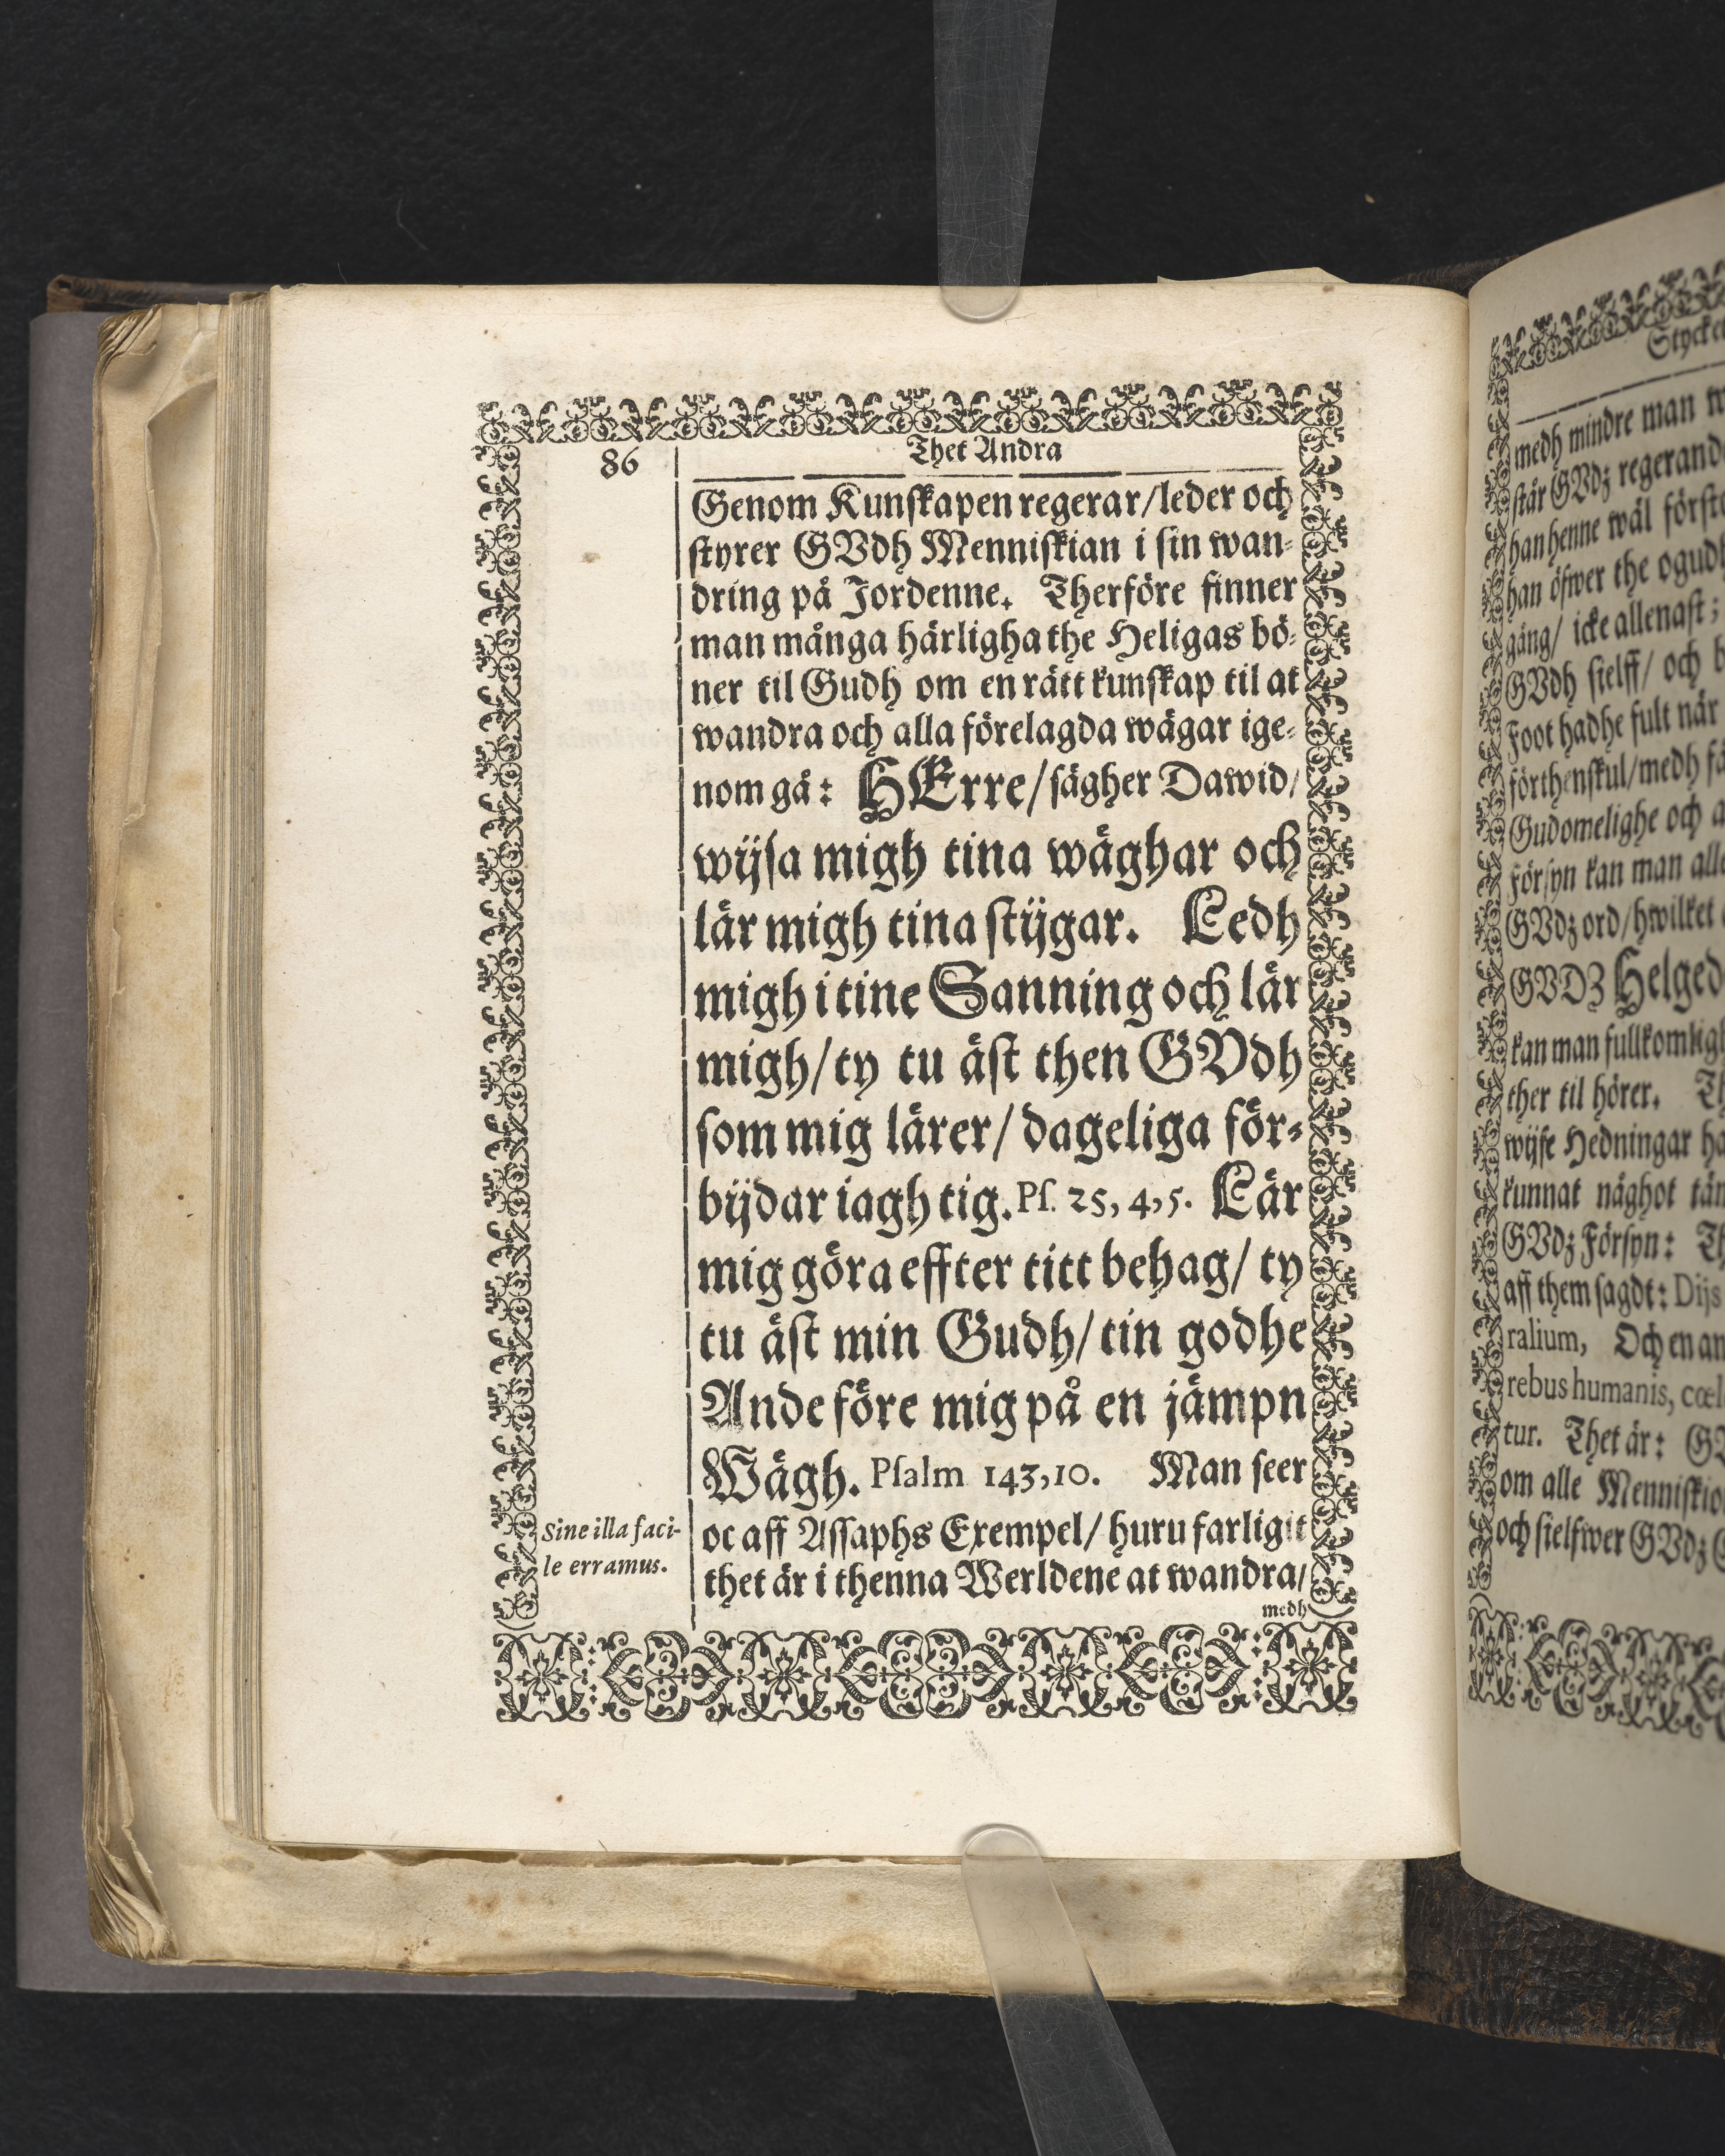 86
Thet Andra
Genom Kunſkapen regerar/leder och
ſtyrer GVdh Menniſkian i ſin wan-
dring på Jordenne. Therföre finner
man många härligha the Heligas bö-
ner til Gudh om en rätt kunſkap til at
wandra och alla förelagda wägar ige-
nom gå: HErre/ſägher Dawid/
wijſa migh tina wäghar och
lär migh tina ſtijgar. Ledh
migh i tine Sanning och lär
migh/ty tu äſt then GVDh
ſom mig lärer/dageliga för-
bijdar iagh tig. Pſ. 25, 4, 5. Lär
mig göra effter titt behag/ ty
tu äſt min Gudh/tin godhe
Ande före mig på en jämpn
Wägh. Pſalm 143,10. Man ſeer
oc aff Aſſaphs Exempel/ huru farligit
thet är i thenna Werldene at wandra/
medh
Sine illa faci-
le erramus.
Stycket
medh mindre man
ſtår GVdz
han henne wäl
han öfwer the
gång/ icke allenaſt;
GVdh ſielff/ och
Foot hadhe fult när
förthenſkul/medh
Gudomelighe och
Förſyn kan man
GVdz ord/hwilket
GVDZ
kan man
ther til hörer.
wijſe Hedningar
kunnat någhot
GVdz Förſyn:
aff them ſagdt: Dijs
ralium, Och en
rebus humanis,
tur. Thet är:
om alle
och ſielfwer GVdz